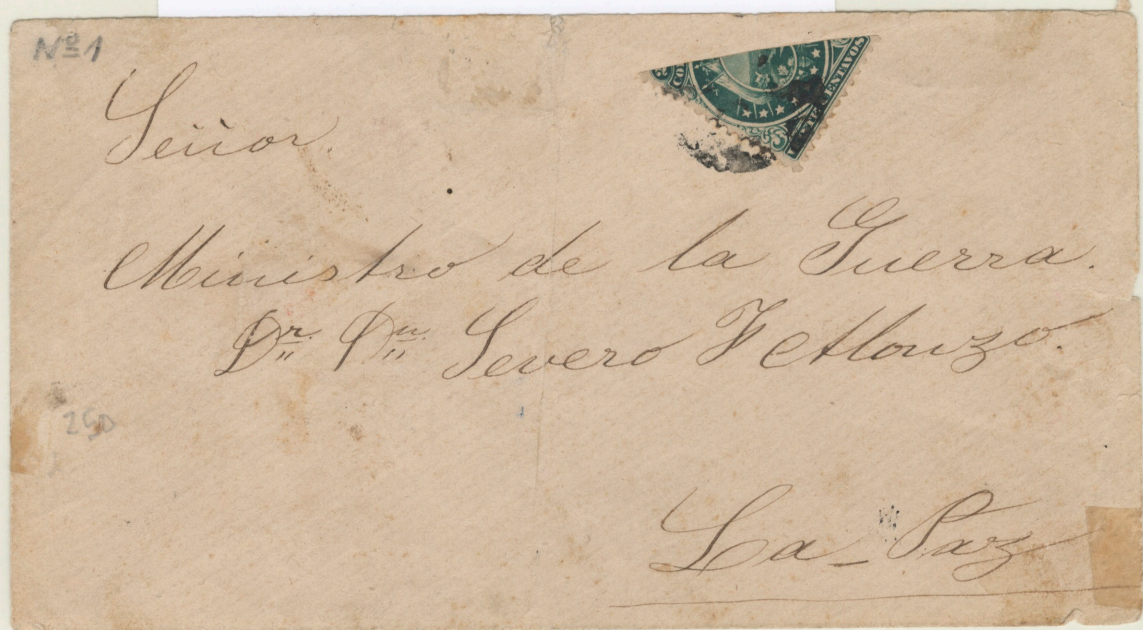 Nº 1
CENTAVOS
Señor.
Ministro de la Guerra.
Dr. Dn. Severo F Alonzo.
250
La Paz